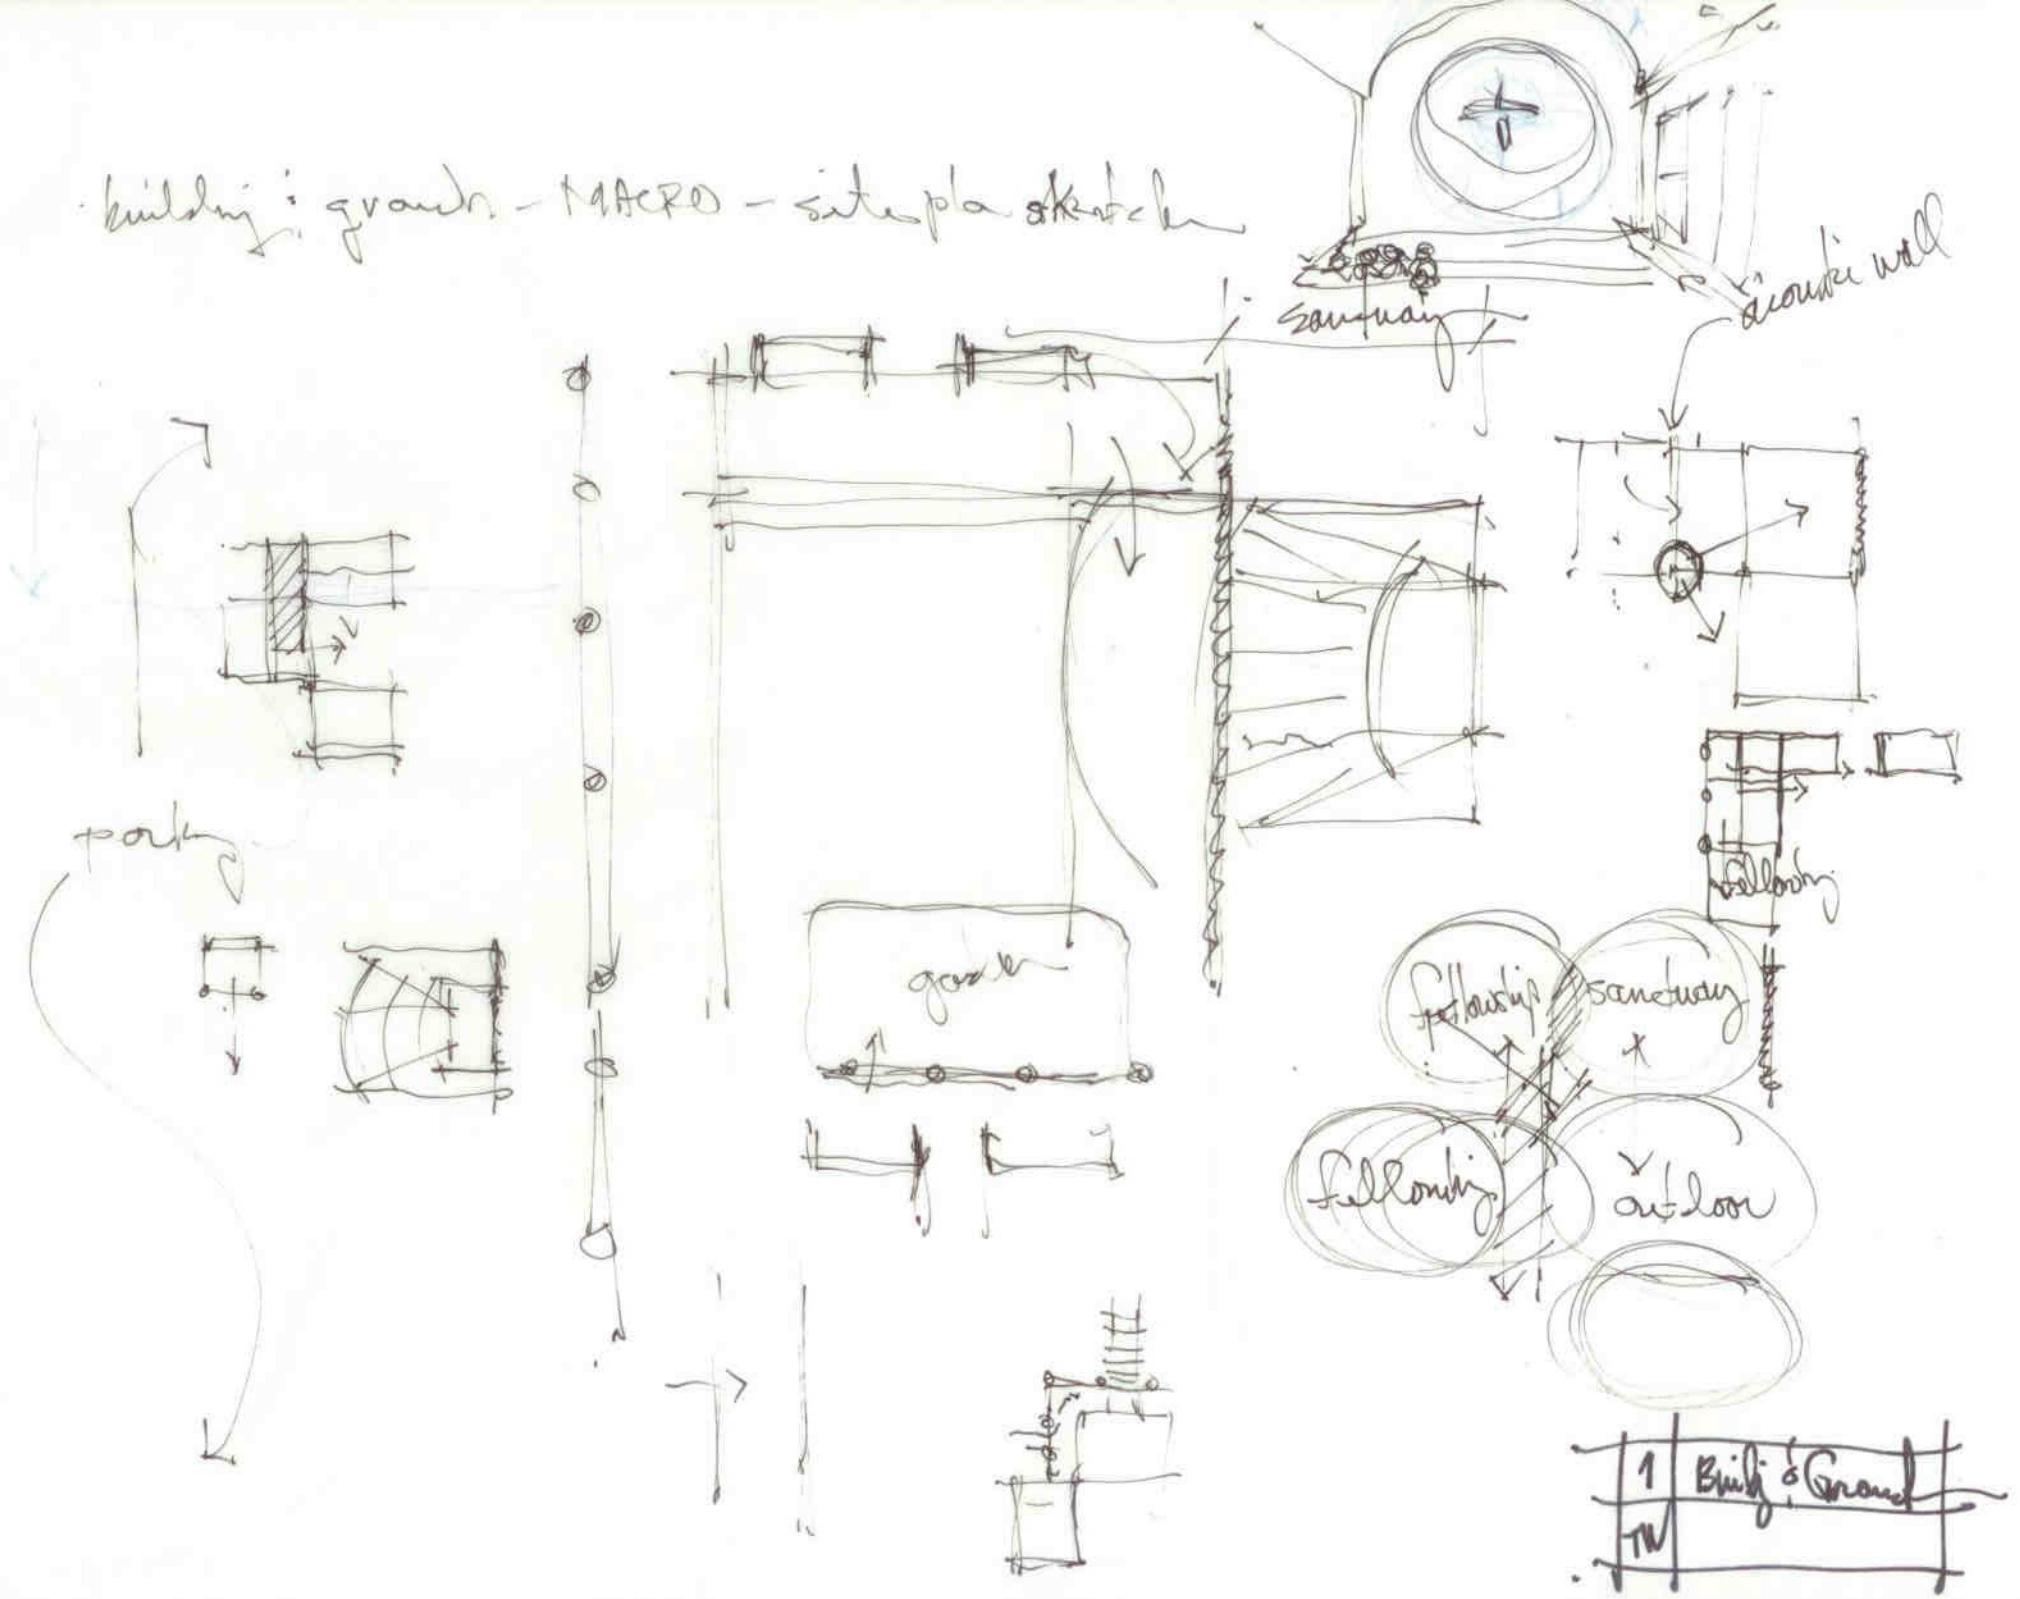 building & grounds - MACRO - site plan sketch
sanctuary
acoustic wall
parking
fellowship
garden
fellowship
sanctuary
fellowship
outdoor
1 Build & Ground
TW